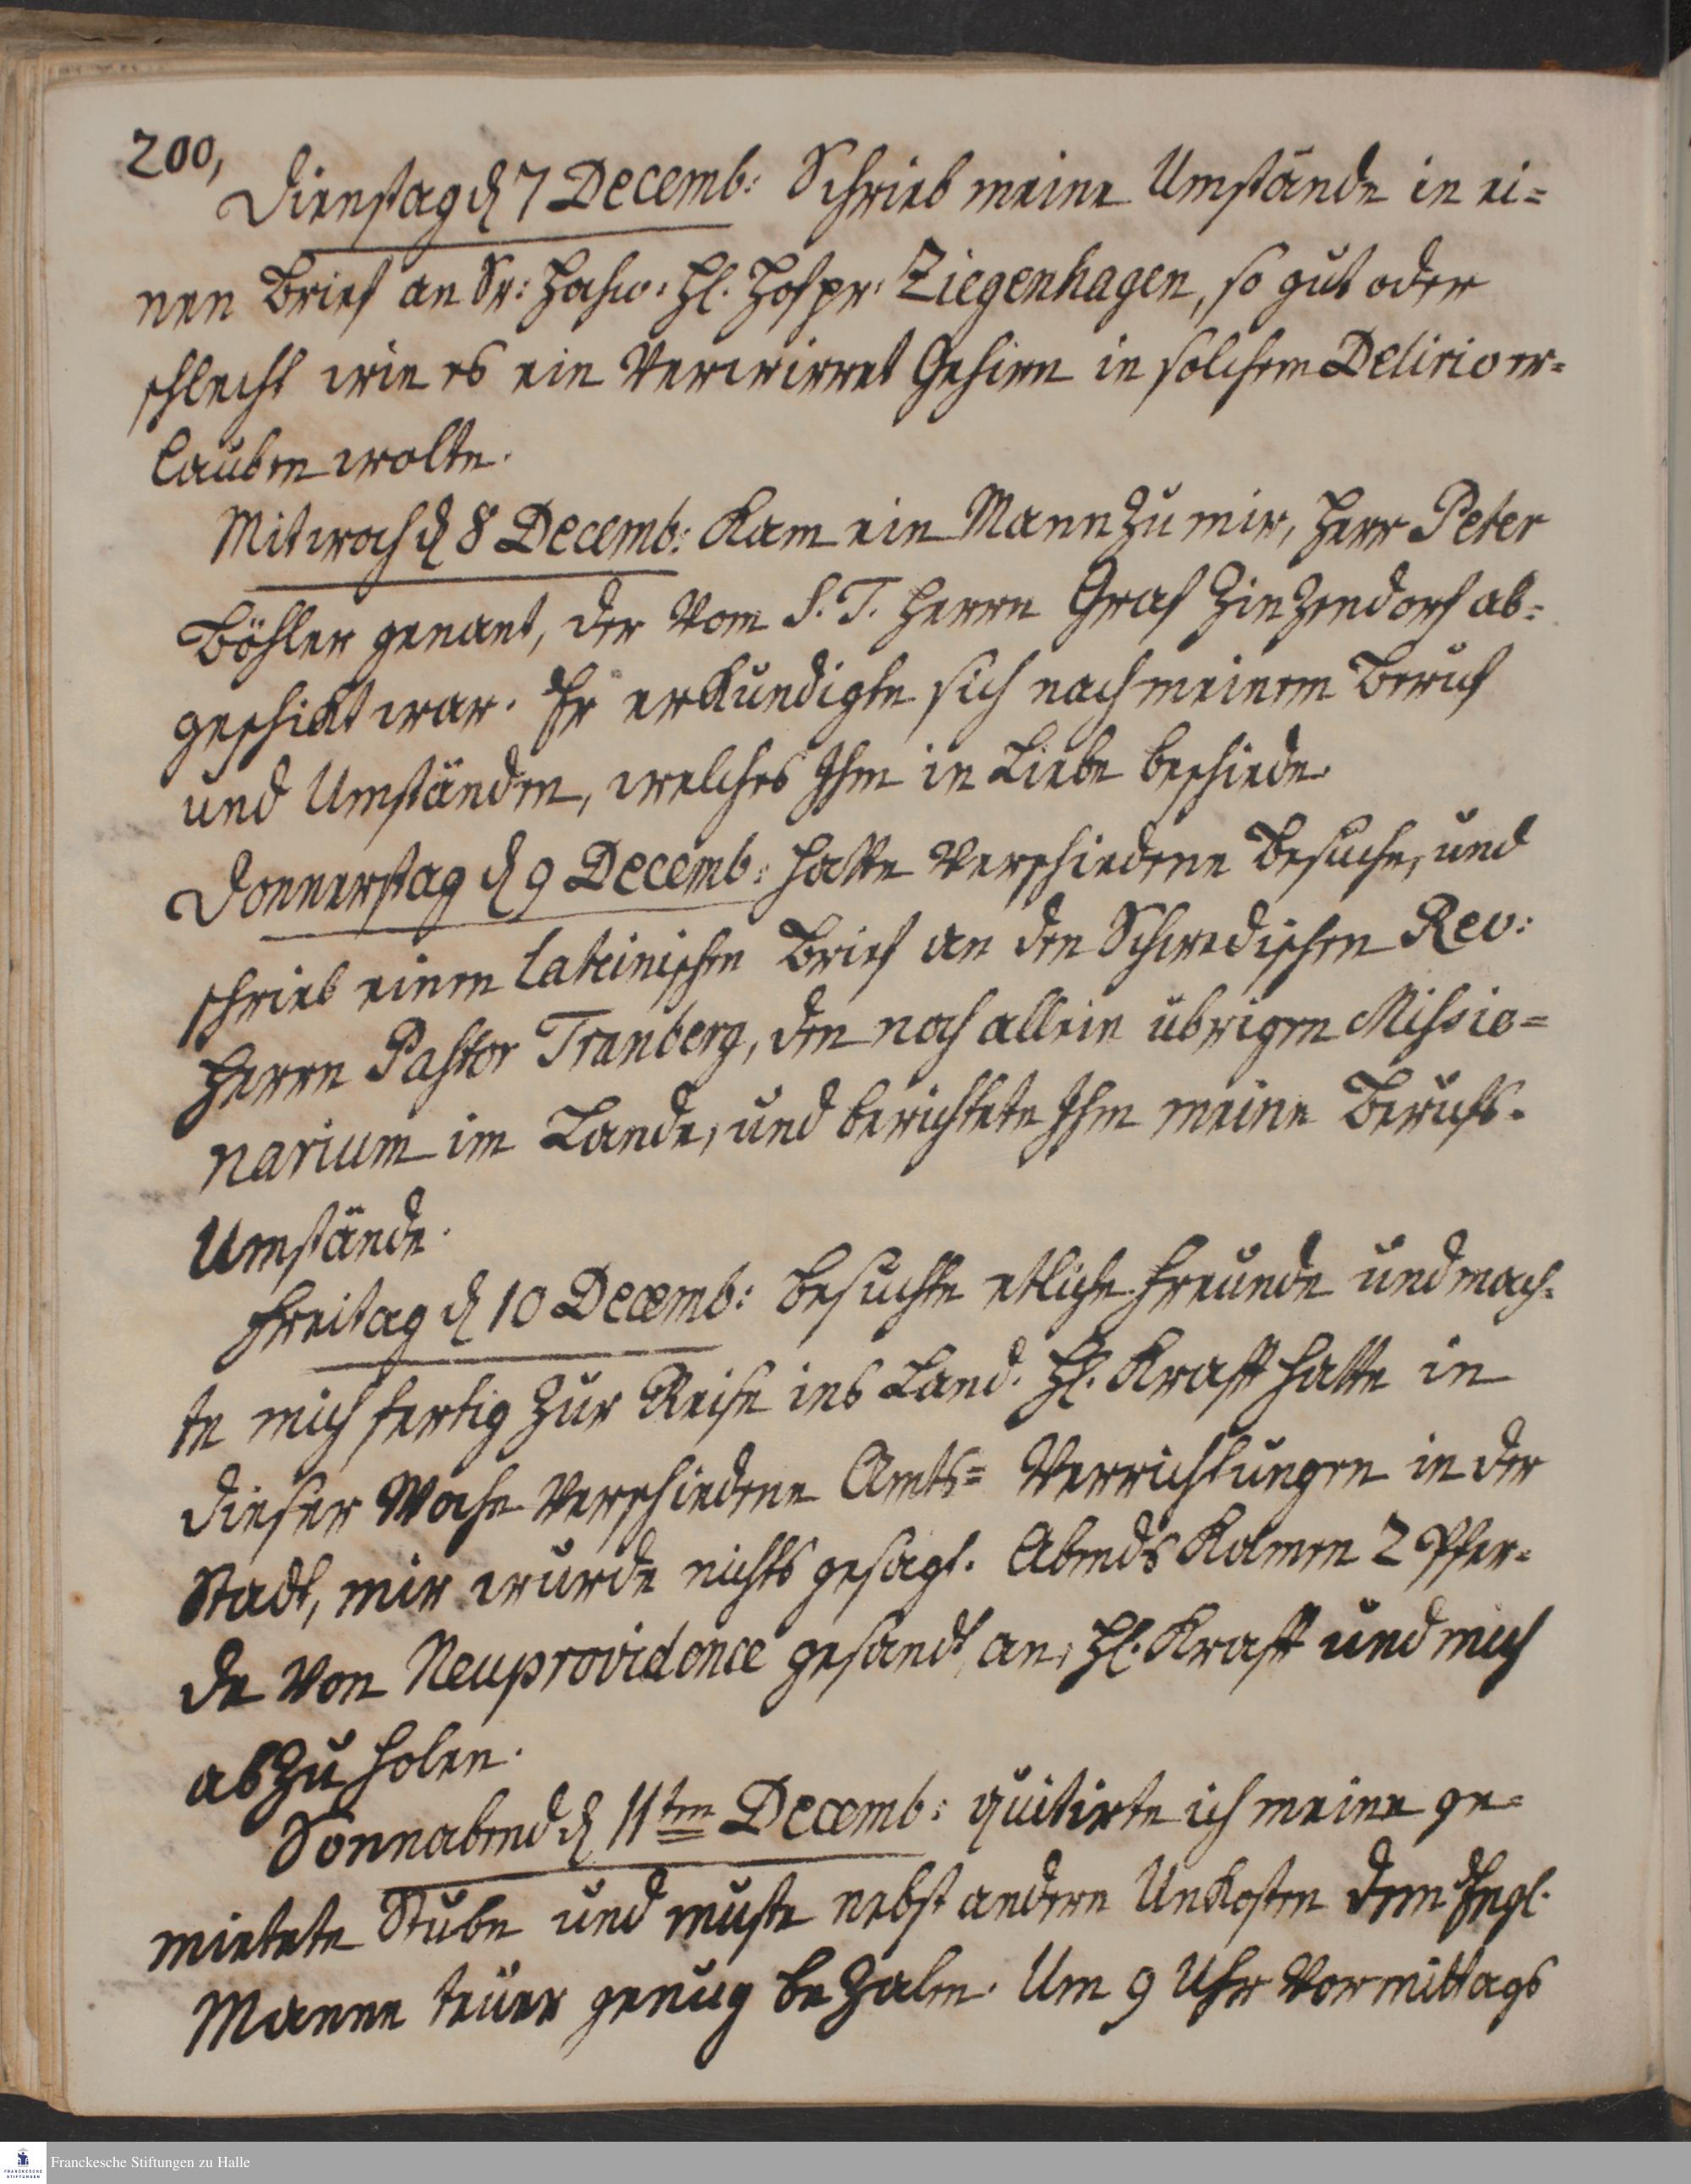 200,
Dienstag d 7 Decemb: Schrieb meine Umstände in ei=
nen Brief an Sr: Hochw: H. Hofpr: Ziegenhagen, so gut oder
schlecht wie es ein Verwirret Gehirn in solchem Delirio er=
lauben wolte.
Mitwoch d 8 Decemb: Kam ein Mann zu mir, Herr Peter
Böhler genant, der Vom S. T. Herrn Graf Zinzendorf ab=
geschikt war. Er erkundigte sich nach meinem Beruf
und Umständen, welches Ihm in Liebe beschiede.
Donnerstag d 9 Decemb: hatte Verschiedene Besuche, und
schrieb einen lateinischen Brief an den Schwedischen Rev:
Herrn Pastor Tranberg, den noch allein übrigen Missio=
narium im Lande, und berichtete Ihm meine Berufs-
Umstände.
Freitag d 10 Decemb: besuchte etliche Freunde und mach-
te mich fertig zur Reise ins Land. H. Kraft hatte in
dieser Woche Verschiedene Amts= Verrichtungen in der
Stadt, mir wurde nichts gesagt. Abends Kamen 2 Pfer-
de Von Neuprovidence gesandt an, H. Kraft und mich
abzuholen.
Sonnabend d 11ten Decemb: quitirte ich meine ge=
mietete Stube und muste nebst andern Unkosten dem Engl.
Manne teuer genug bezalen. Um 9 Uhr Vormittags
Franckesche Stiftungen zu Halle
FRANCKESCHE
STIFTUNGEN